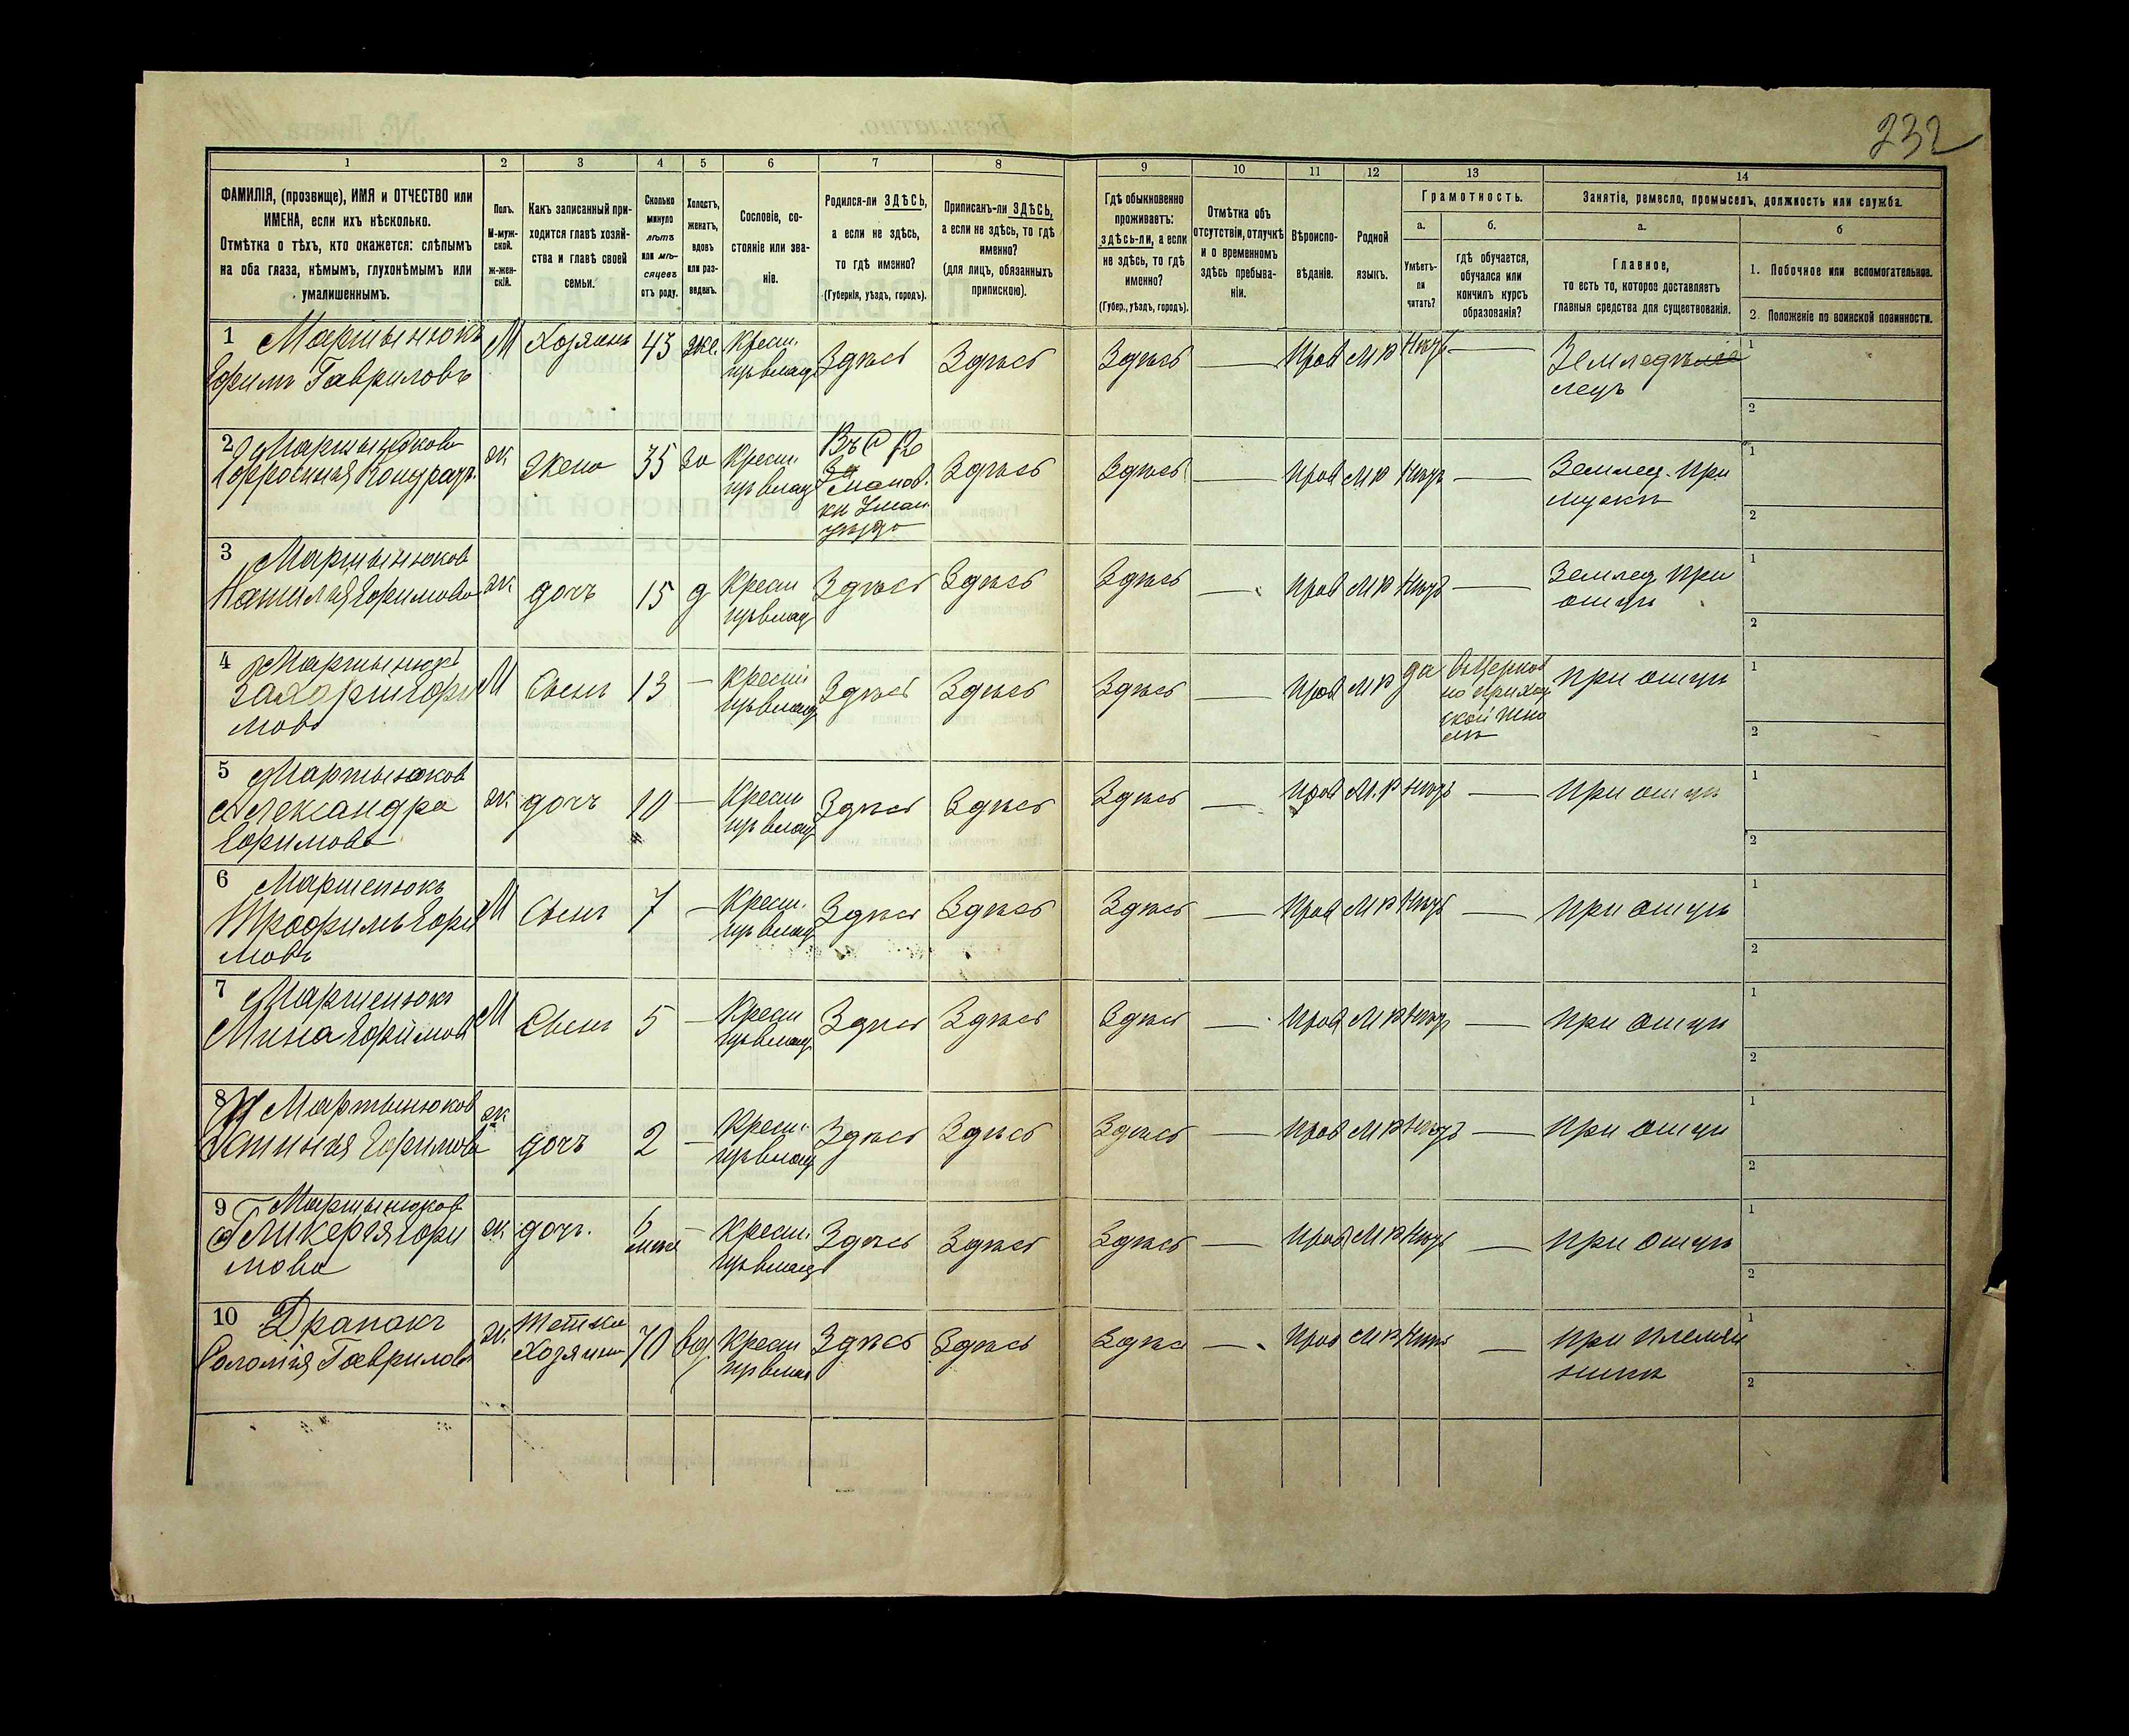 232
1 2 3 4 5 6 7 8 9 10 11 12 13 14
ФАМИЛІЯ, (прозвище), ИМЯ и ОТЧЕСТВО или
ИМЕНА, если ихъ нѣсколько.
Отмѣтка о тѣхъ, кто окажется: слѣпымъ
на оба глаза, нѣмымъ, глухонѣмымъ или
умалишеннымъ.
Полъ.
М-муж-
ской.
ж-жен-
скій.
Какъ записанный при-
ходится главѣ хозяй-
ства и главѣ своей
семьи.
Сколько
минуло
лѣтъ
или мѣ-
сяцевъ
отъ роду.
Холостъ,
женатъ,
вдовъ
или раз-
веденъ.
Сословіе, со-
стояніе или зва-
ніе.
Родился-ли ЗДѢСЬ,
а если не здѣсь,
то гдѣ именно?
(Губернія, уѣздъ, городъ).
Приписанъ-ли ЗДѢСЬ,
а если не здѣсь, то гдѣ
именно?
(для лицъ, обязанныхъ
припискою).
Гдѣ обыкновенно
проживаетъ:
здѣсь-ли, а если
не здѣсь, то гдѣ
именно?
(Губер., уѣздъ, городъ).
Отмѣтка объ
отсутствіи, отлучкѣ
и о временномъ
здѣсь пребыва-
ніи.
Вѣроиспо-
вѣданіе.
Родной
языкъ.
Грамотность.
а.
Умѣетъ-
ли
читать?
б.
гдѣ обучается,
обучался или
кончилъ курсъ
образованія?
Занятіе, ремесло, промыселъ, должность или служба.
а.
Главное,
то есть то, которое доставляетъ
главныя средства для существованія.
б
1. Побочное или вспомогательное.
2. Положеніе по воинской повинности.
1 Мартынюкъ
Ефимъ Гавриловъ
М Хозяинъ 43 же. Крест.
изъ влад Здѣсь Здѣсь Здѣсь — Прав М р Нѣтъ — Земледѣ
лецъ
1
2
2 Мартынюкова
Ефросинія Кондрат.
ж Жена 35 за Крест.
изъ влад
Уман
уѣзда
Здѣсь Здѣсь — Прав М р Нѣтъ — Землед. при
мужѣ
1
2
3 Мартынюков
Наталия Ефимова
ж дочь 15 д Крест
изъ влад Здѣсь Здѣсь Здѣсь — Прав М р Нѣтъ — Землед при
отцѣ
1
2
4 Мартынюкъ
Захарій Ефи
мовъ
М Сынъ 13 — Крест
изъ влад Здѣсь Здѣсь Здѣсь — Прав М р да Въ Церков
но приход
ской шко
лѣ
при отцѣ
1
2
5 Мартынюков
Александра
Ефимова
ж дочь 10 — Крест
изъ влад Здѣсь Здѣсь Здѣсь — Прав М. р Нѣтъ — при отцѣ
1
2
6 Мартенюкъ
Трофимъ Ефи
мовъ
М Сынъ 7 — Крест.
изъ влад Здѣсь Здѣсь Здѣсь — Прав М р Нѣтъ — при отцѣ
1
2
7 Мартенюкъ
Мина Ефимов
М Сынъ 5 — Крест
изъ влад Здѣсь Здѣсь Здѣсь — Прав М р Нѣтъ — при отцѣ
1
2
8 Мартынюков
Устинія Ефимова
ж дочь 2 — Крест.
изъ влад Здѣсь Здѣсь Здѣсь — Прав М р Нѣтъ — при отцѣ
1
2
9 Мартынюков
Гликерія Ефи
мова
ж дочь. 6
мѣся — Крест.
изъ влад Здѣсь Здѣсь Здѣсь — Прав М р Нѣтъ — при отцѣ
1
2
10 Драпакъ
Соломія Гаврилов
ж Тетка
Хозяина 70 вд. Крест
изъ влад Здѣсь Здѣсь Здѣсь — Прав М р Нѣтъ — при племян
никѣ
1
2